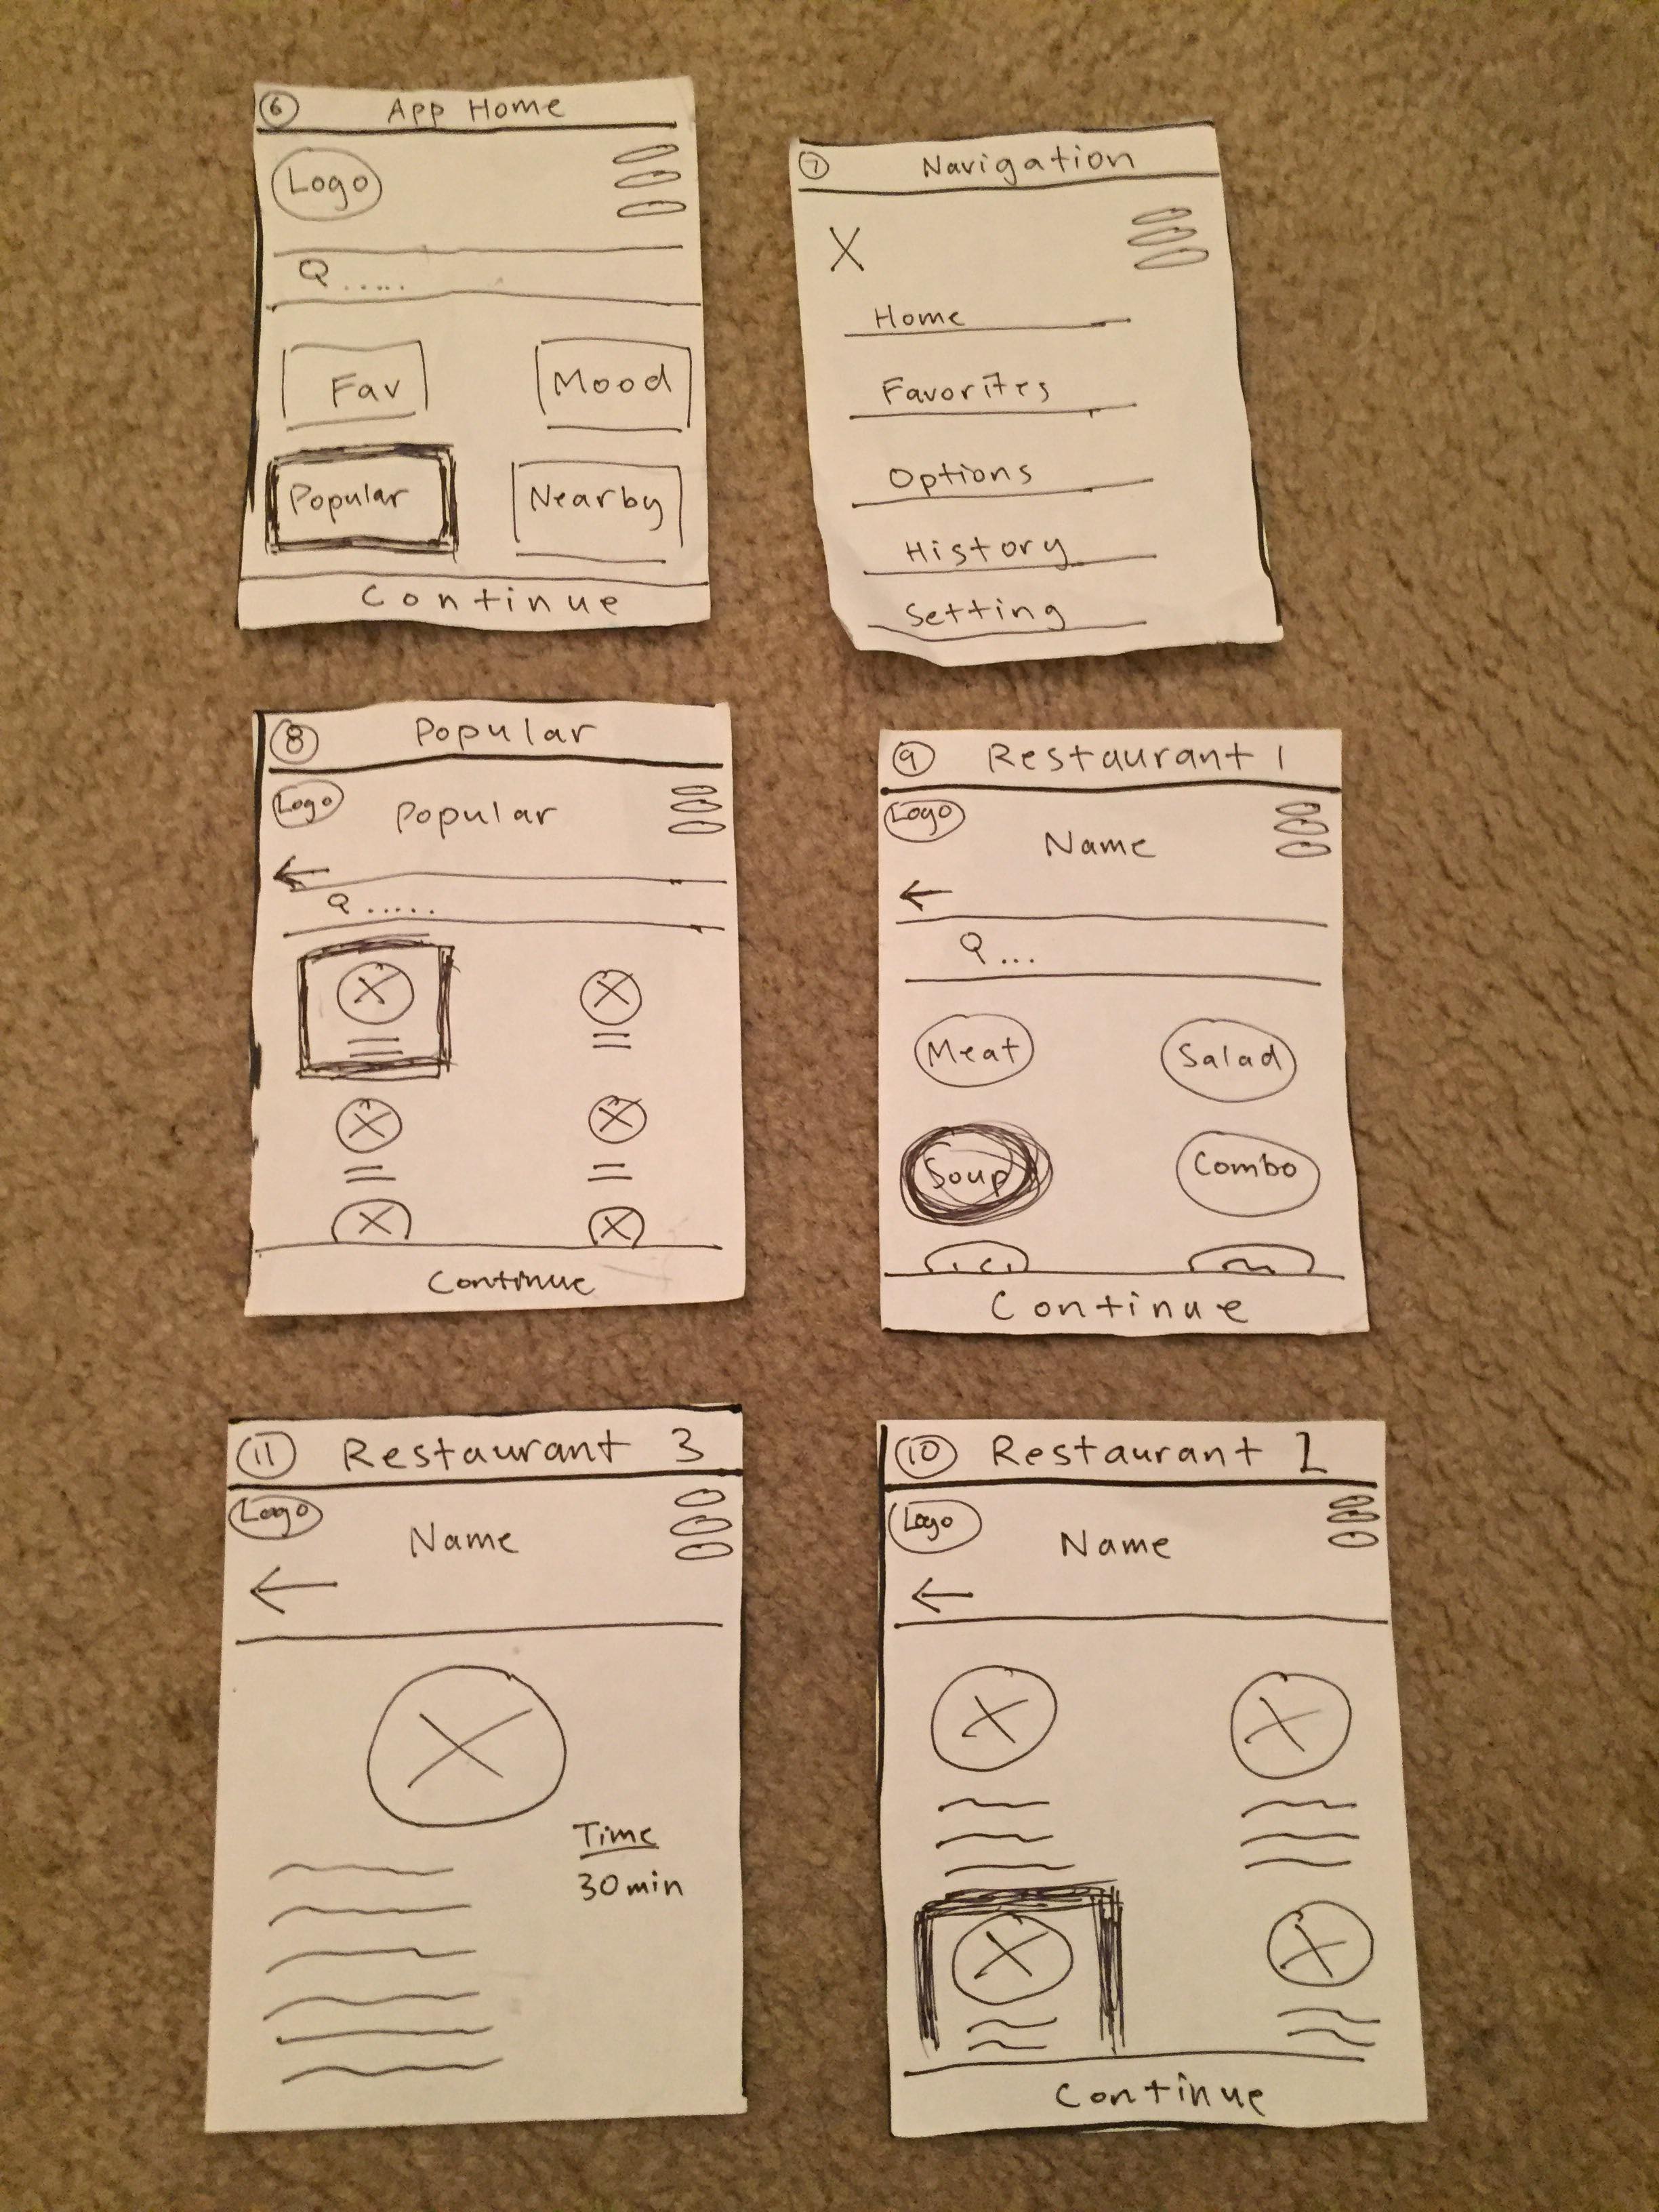 6 App Home
Logo
.....
Fav
Mood
Popular
Nearby
Continue
7 Navigation
X
Home
Favorites
Options
History
Setting
8 Popular
Logo
Popular
.....
Continue
9 Restaurant 1
Logo
Name
...
Meat
Salad
Soup
Combo
Continue
11 Restaurant 3
Logo
Name
Time
30min
10 Restaurant 2
Logo
Name
Continue